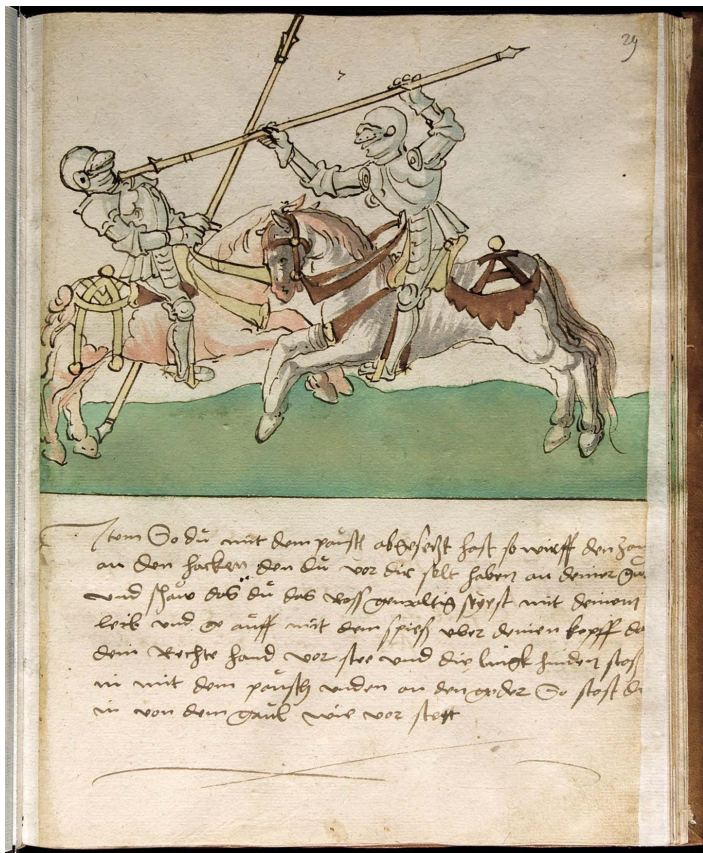 29
Item So du mit dem pausch abgesetzt hast so wirff den Za
an den hacken den du vor dir solt haben an deiner
und schaw das du das Ross gewaltig seyest mit deinem
leib und ge auff mit dem spieß uber deinen kopff da
dein Rechte hand vor stee und die lingk hinden stos
in mit dem pausch unden an den So stost du
in von dem gaul wie vor stett